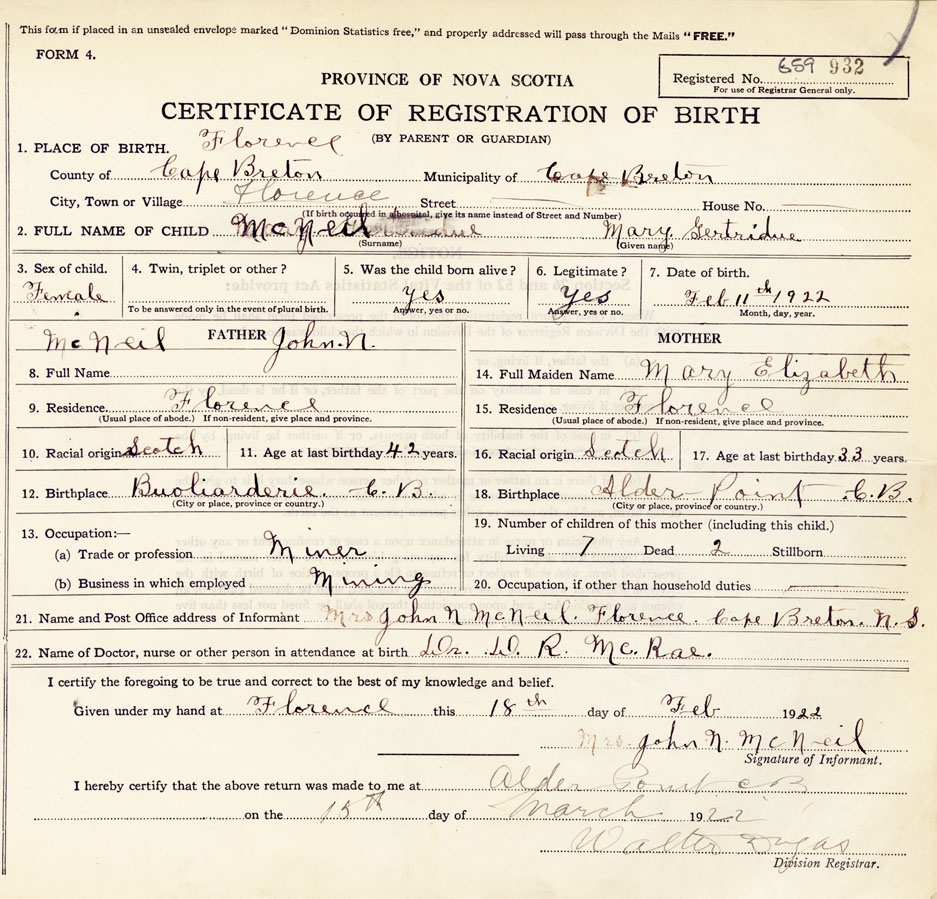 This form if placed in an unsealed envelope marked "Dominion Statistics free," and properly addressed will pass through the Mails "FREE."
FORM 4.
Registered No. 659 932
For use of Registrar General only.
PROVINCE OF NOVA SCOTIA
CERTIFICATE OF REGISTRATION OF BIRTH
(BY PARENT OR GUARDIAN)
1. PLACE OF BIRTH. Florence
County of Cape Breton Municipality of Cape Breton
City, Town or Village Florence Street House No.
(If birth occurred in a hospital, give its name instead of Street and Number)
2. FULL NAME OF CHILD McNeil Mary Gertridue
(Surname) (Given name)
3. Sex of child. 4. Twin, triplet or other? 5. Was the child born alive? 6. Legitimate? 7. Date of birth.
Female yes Yes Feb 11th 1922
To be answered only in the event of plural birth. Answer, yes or no. Answer, yes or no. Month, day, year.
FATHER MOTHER
McNeil John. N.
8. Full Name 14. Full Maiden Name Mary Elizabeth
9. Residence. Florence 15. Residence Florence
(Usual place of abode.) If non-resident, give place and province. (Usual place of abode.) If non-resident, give place and province.
10. Racial origin Scotch 11. Age at last birthday 42 years. 16. Racial origin Scotch 17. Age at last birthday 33 years.
12. Birthplace Buoliarderie. C. B. 18. Birthplace Alder Point C. B.
(City or place, province or country.) (City or place, province or country.)
13. Occupation:— 19. Number of children of this mother (including this child.)
(a) Trade or profession Miner Living 7 Dead 2 Stillborn
(b) Business in which employed Mining 20. Occupation, if other than household duties
21. Name and Post Office address of Informant Mrs John N McNeil. Florence. Cape Breton. N. S.
22. Name of Doctor, nurse or other person in attendance at birth Dr. D. R. McRae.
I certify the foregoing to be true and correct to the best of my knowledge and belief.
Given under my hand at Florence this 18th day of Feb 1922
Mrs. John N. McNeil
Signature of Informant.
I hereby certify that the above return was made to me at Alder Point CB
on the 15th day of March 1922
Walter Dugas
Division Registrar.